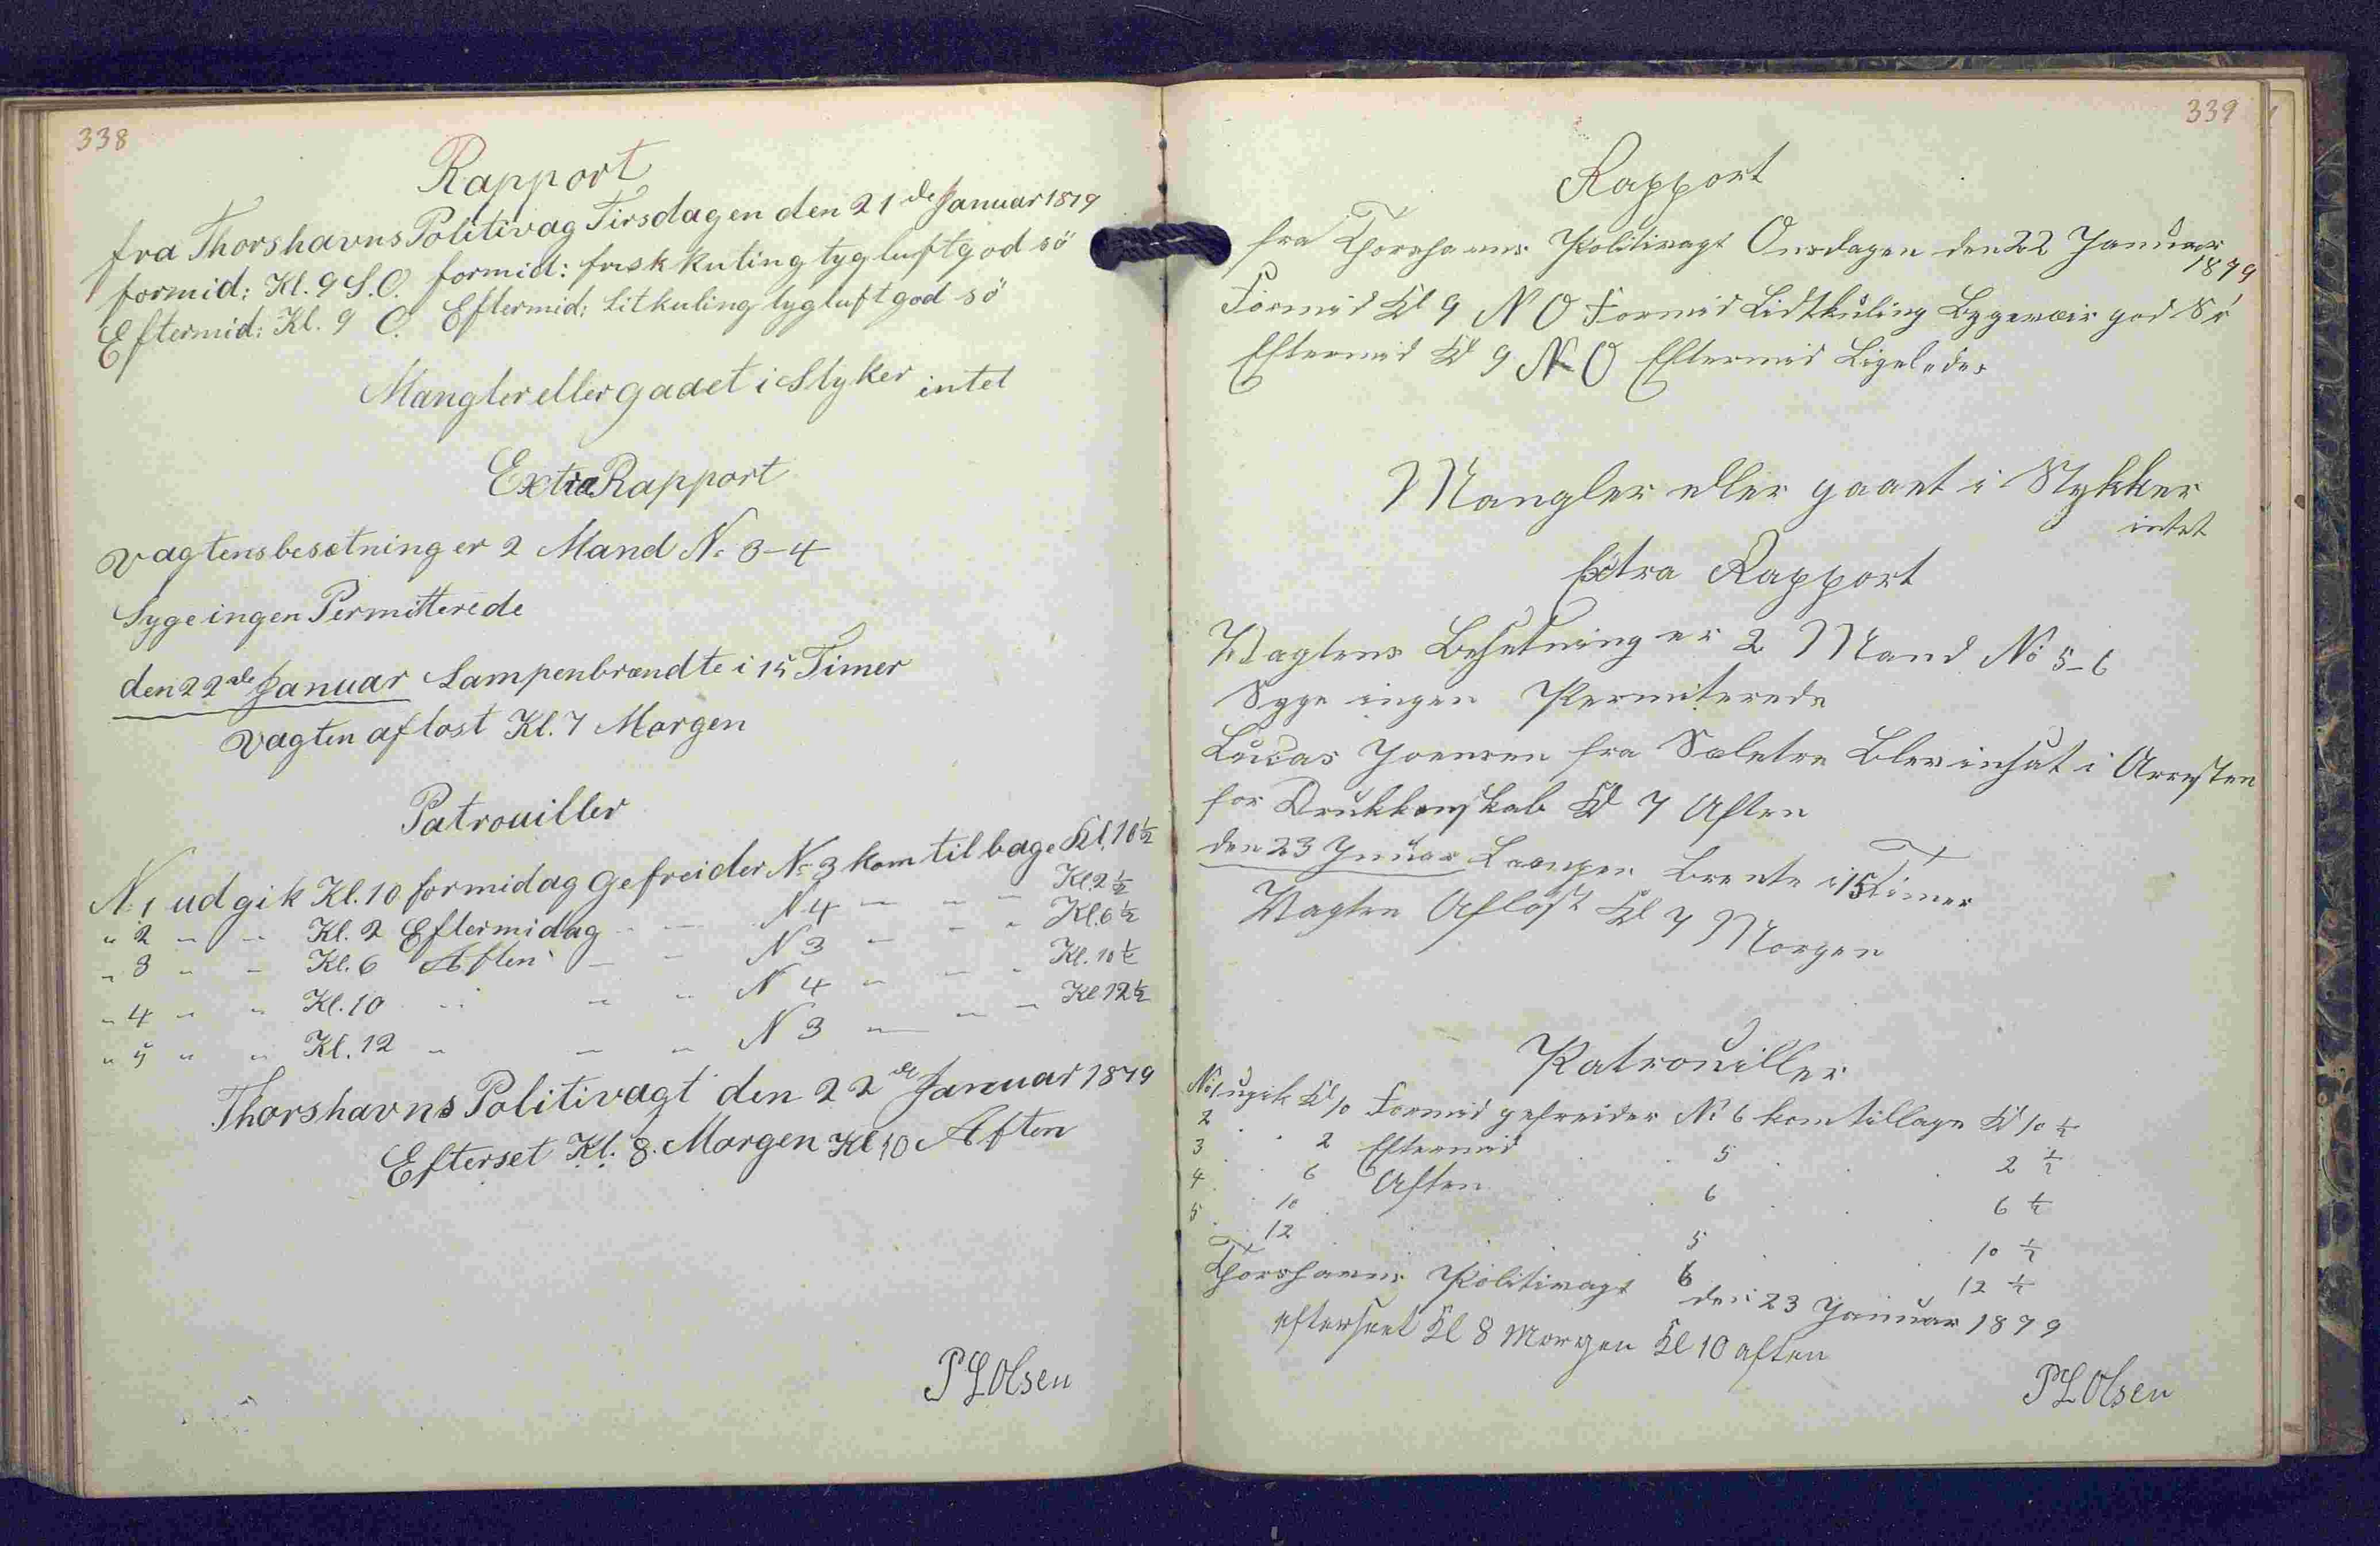 338
Rapport
fra Thorshavns Politivag Tirsdagen den 21de Januar 1879
formid: Kl. 9 S.O. formid: frisk kuling tyg luft god sö
Eftermid: Kl. 9 O. Eftermid: Litkuling tyg luft god sö
Mangler eller gaaet i Styker intet
Extra Rapport
Vagtens besetning er 2 Mand No 3-4
Syge ingen Permitterede
den 22de Januar Lampen brændte i 15 Timer
Vagten aflöst Kl. 7 Morgen
Patrouiller
No 1 ud gik Kl. 10 formidag Gefreider No 3 kom tilbage Kl. 10½
" 2 " " Kl. 2 Eftermidag " " N 4 " " " Kl. 2½
" 3 " " Kl. 6 Aften " " N 3 " " " Kl. 6½
" 4 " " Kl. 10 " " " N 4 " " " Kl. 10½
" 5 " " Kl. 12 " " " N 3 " " " Kl. 12½
Thorshavns Politivagt den 22de Januar 1879
Efterset Kl. 8. Morgen Kl 10 Aften
P L Olsen
339
Rapport
fra Thorshavns Politivagt Onsdagen den 22 Januar
1879
Formid Kl 9 N O Formid Lidtkuling Bygevæir god Sö
Eftermid Kl 9 N O Eftermid Ligeledes
Mangler eller gaaet i Stykker
intet
Extra Rapport
Vagtens Besetning er 2 Mand No 5-6
Syge ingen Permiterede
Lucas Joensen fra Saletre Blev insat i Arresten
for Drukkenskab Kl 7 Aften
den 23 Januar Lampen Brente i 15 Timer
Vagten Aflöst Kl 7 Morgen
Patrouiller
No 1 ugik Kl 10 Formid gefreider No 6 kom tilbage Kl 10½
2 " " 2 Eftermid " " 5 " " 2½
3 " " 6 Aften " " 6 " " 6½
4 " " 10 " " 5 " " 10½
5 " " 12 " " 6 " " 12½
Thorshavns Politivagt den 23 Januar 1879
efterseet Kl 8 Morgen Kl 10 aften
P L Olsen